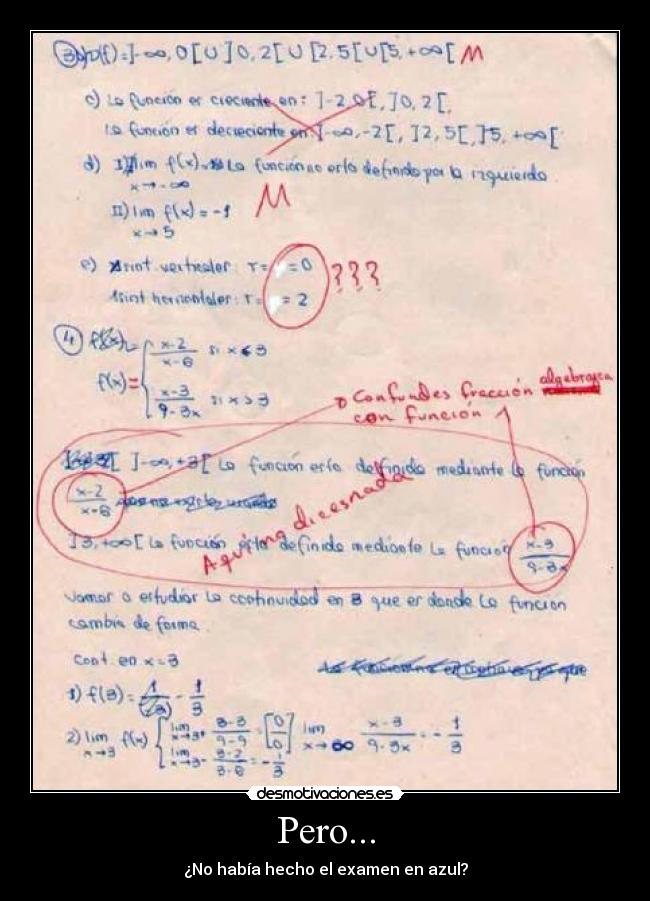 3 b) D(f) = ]-∞, 0[ U ]0, 2[ U [2, 5[ U [5, +∞[ M
c) La función es creciente en: ]-2, 0[, ]0, 2[,
la función es decreciente en: ]-∞, -2[, ]2, 5[, ]5, +∞[
d) I) lim f(x) La función no está definida por la izquierda.
x→-∞
M
II) lim f(x) = -1
x→5
e) Asint. verticales: r = = 0
???
Asint horizontales: r = = 2
4 f(x) =
x-2 / x-6 si x ≤ 3
f(x) =
x-3 / 9-3x si x > 3
Confundes fracción algebraica
con función
]-∞, +3[ La función está definida mediante la función
x-2 / x-6
Aquí no dices nada
]3, +∞[ La función está definida mediante la función x-3 / 9-3x
Vamos a estudiar la continuidad en 3 que es donde la función
cambia de forma.
Cont. en x = 3
1) f(3) = - 1/3
2) lim f(x) x→3
lim x→3+ 3-3 / 9-9 = [0/0] lim x→∞ x-3 / 9-3x = - 1/3
lim x→3- 3-2 / 3-6 = - 1/3
desmotivaciones.es
Pero...
¿No había hecho el examen en azul?